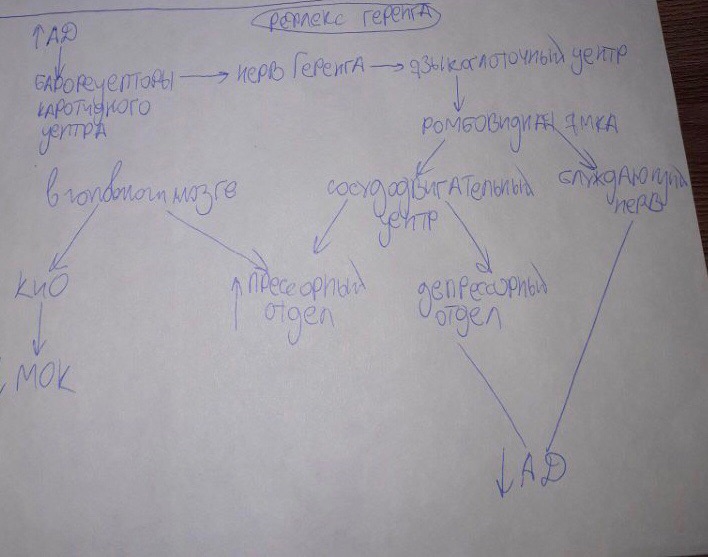 рефлекс геренга
↑АД
барорецепторы → нерв Геренга → языкоглоточный центр
каротидного
центра
ромбовидная ямка
в головном мозге
сосудодвигательный
центр
блуждающий
нерв
КиО
↑ прессорный
отдел
депрессорный
отдел
↓ МОК
↓ АД